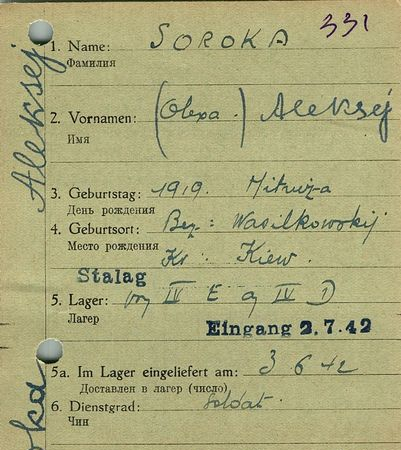 331
1. Name: SOROKA
Фамилия
2. Vornamen: (Olexa.) Aleksej
Имя
3. Geburtstag: 1919.
День рождения
4. Geburtsort: Bez: Wasilkowskij
Место рождения
Kr: Kiew.
Stalag
5. Lager: IV E IV D
Лагер
Eingang 2.7.42
5a. Im Lager eingeliefert am: 3 6 42
Доставлен в лагер (число)
6. Dienstgrad: Soldat.
Чин
Aleksej
oka